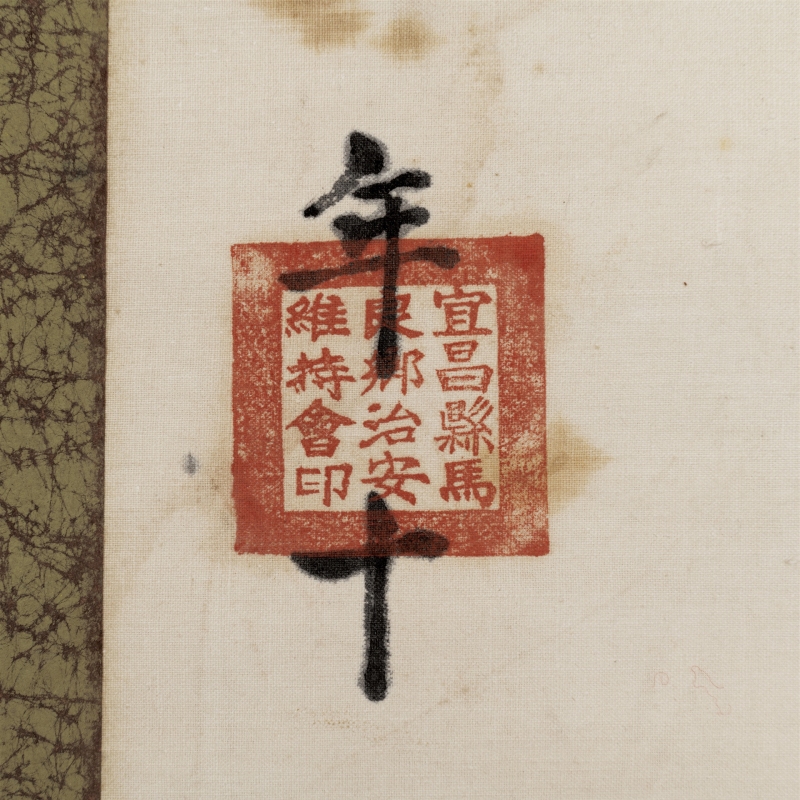 年
十
宜昌縣馬
良鄉治安
維持會印